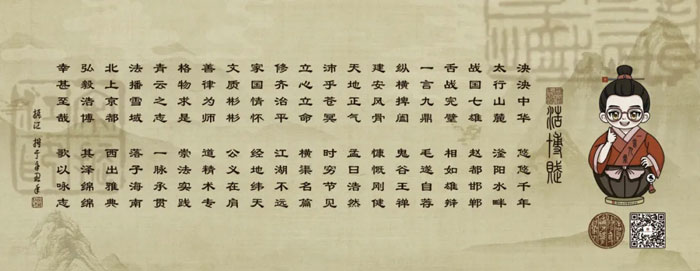 浩博賦
泱泱中华 悠悠千年
太行山麓 滏阳水畔
战国七雄 赵都邯郸
舌战完璧 相如雄辩
一言九鼎 毛遂自荐
纵横捭阖 鬼谷王禅
建安风骨 慷慨刚健
天地正气 孟曰浩然
沛乎苍冥 时穷节见
立心立命 横渠名篇
修齐治平 江湖不远
家国情怀 经地纬天
文质彬彬 公义在肩
善律为师 道精术专
格物求是 崇法实践
青云之志 一脉承贯
法播雪域 落子海南
北上京都 西出雅典
弘毅浩博 其泽绵绵
幸甚至哉 歌以咏志